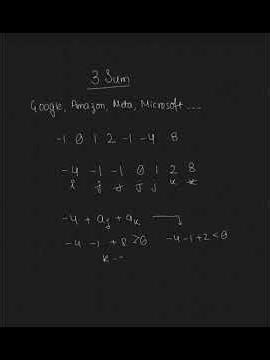 3 Sum
Google, Amazon, Meta, Microsoft ---
-1 0 1 2 -1 -4 8
-4 -1 -1 0 1 2 8
i j j j j k k
-4 + aj + ak
-4 -1 + 8 > 0 -4 -1 + 2 < 0
k --